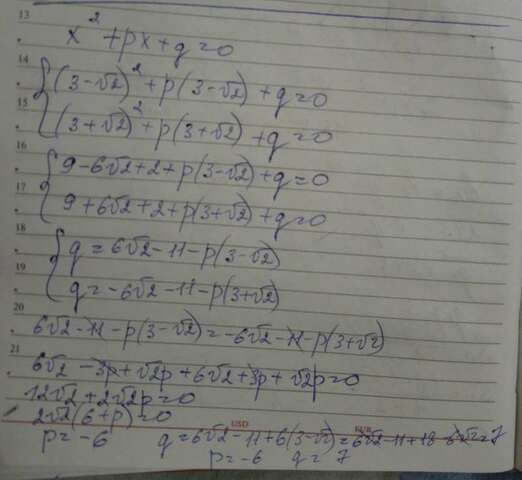 13
x² + px + q = 0
14
(3-√2)² + p(3-√2) + q = 0
15
(3+√2)² + p(3+√2) + q = 0
16
9 - 6√2 + 2 + p(3-√2) + q = 0
17
9 + 6√2 + 2 + p(3+√2) + q = 0
18
q = 6√2 - 11 - p(3-√2)
19
q = -6√2 - 11 - p(3+√2)
20
6√2 - 11 - p(3-√2) = -6√2 - 11 - p(3+√2)
21
6√2 - 3p + √2p + 6√2 + 3p + √2p = 0
12√2 + 2√2p = 0
2√2(6+p) = 0
USD EUR
p = -6 q = 6√2 - 11 + 6(3-√2) = 6√2 - 11 + 18 - 6√2 = 7
p = -6 q = 7